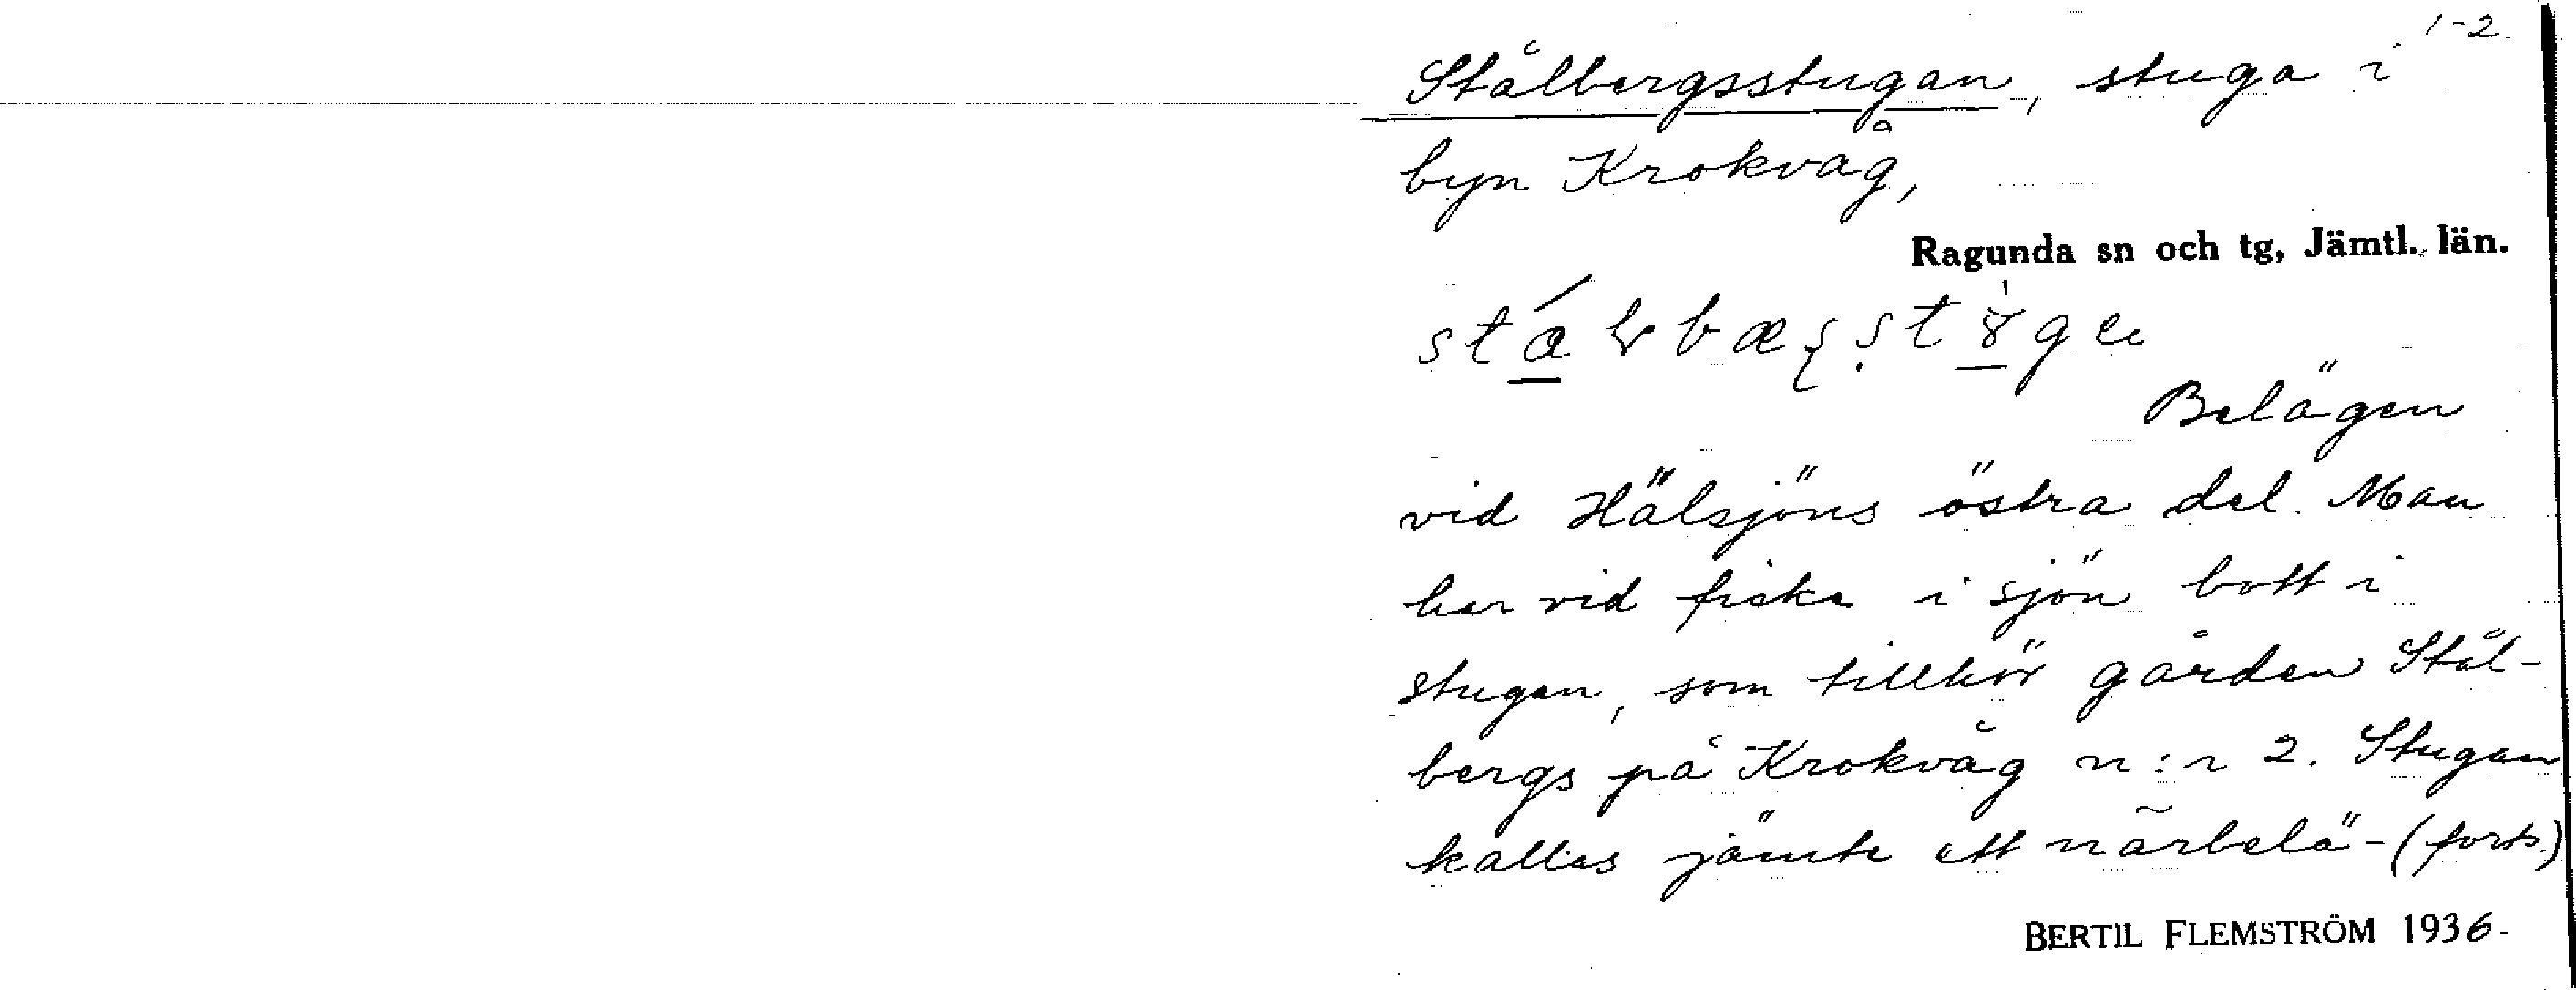 1-2.
Stålbergsstugan, stuga i
byn Krokvåg,
Ragunda sn och tg, Jämtl. län.
Belägen
vid Hälsjöns östra del. Man
har vid fiske i sjön bott i
stugan, som tillhör gården Stål-
bergs på Krokvåg n:r 2. Stugan
kallas jämte ett närbelä- (forts.)
BERTIL FLEMSTRÖM 1936.